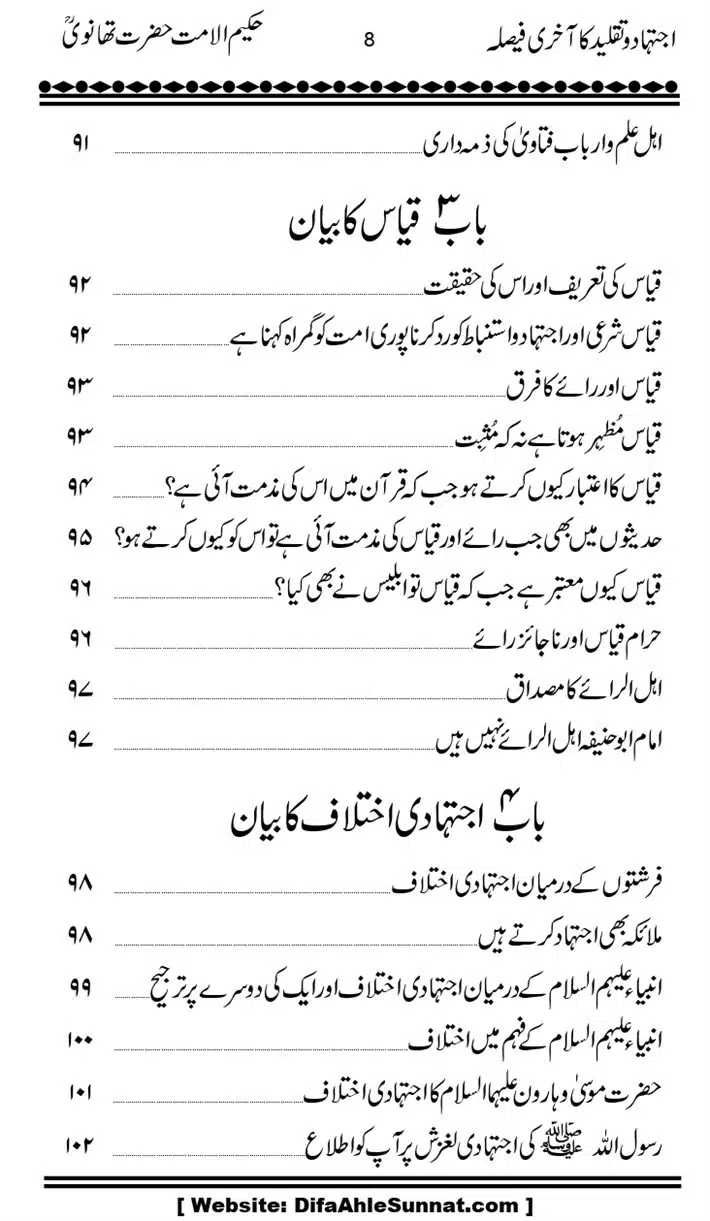 اجتہاد و تقلید کا آخری فیصلہ 8 حکیم الامت حضرت تھانویؒ
اہل علم وارباب فتاویٰ کی ذمہ داری ۹۱
باب ۳ قیاس کا بیان
قیاس کی تعریف اور اس کی حقیقت ۹۲
قیاس شرعی اور اجتہاد و استنباط کو رد کرنا پوری امت کو گمراہ کہنا ہے ۹۲
قیاس اور رائے کا فرق ۹۳
قیاس مُظہِر ہوتا ہے نہ کہ مُثبِت ۹۳
قیاس کا اعتبار کیوں کرتے ہو جب کہ قرآن میں اس کی مذمت آئی ہے؟ ۹۴
حدیثوں میں بھی جب رائے اور قیاس کی مذمت آئی ہے تو اس کو کیوں کرتے ہو؟ ۹۵
قیاس کیوں معتبر ہے جب کہ قیاس تو ابلیس نے بھی کیا؟ ۹۶
حرام قیاس اور ناجائز رائے ۹۶
اہل الرائے کا مصداق ۹۷
امام ابوحنیفہ اہل الرائے نہیں ہیں ۹۷
باب ۴ اجتہادی اختلاف کا بیان
فرشتوں کے درمیان اجتہادی اختلاف ۹۸
ملائکہ بھی اجتہاد کرتے ہیں ۹۸
انبیاء علیہم السلام کے درمیان اجتہادی اختلاف اور ایک کی دوسرے پر ترجیح ۹۹
انبیاء علیہم السلام کے فہم میں اختلاف ۱۰۰
حضرت موسیٰ وہارون علیہما السلام کا اجتہادی اختلاف ۱۰۱
رسول اللہ ﷺ کی اجتہادی لغزش پر آپ کو اطلاع ۱۰۲
[ Website: DifaAhleSunnat.com ]